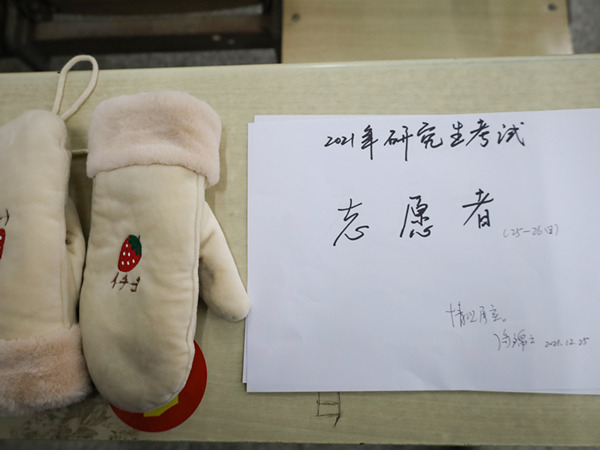 2021年研究生考试
志愿者
(25-26日)
情况属实。
2020.12.25